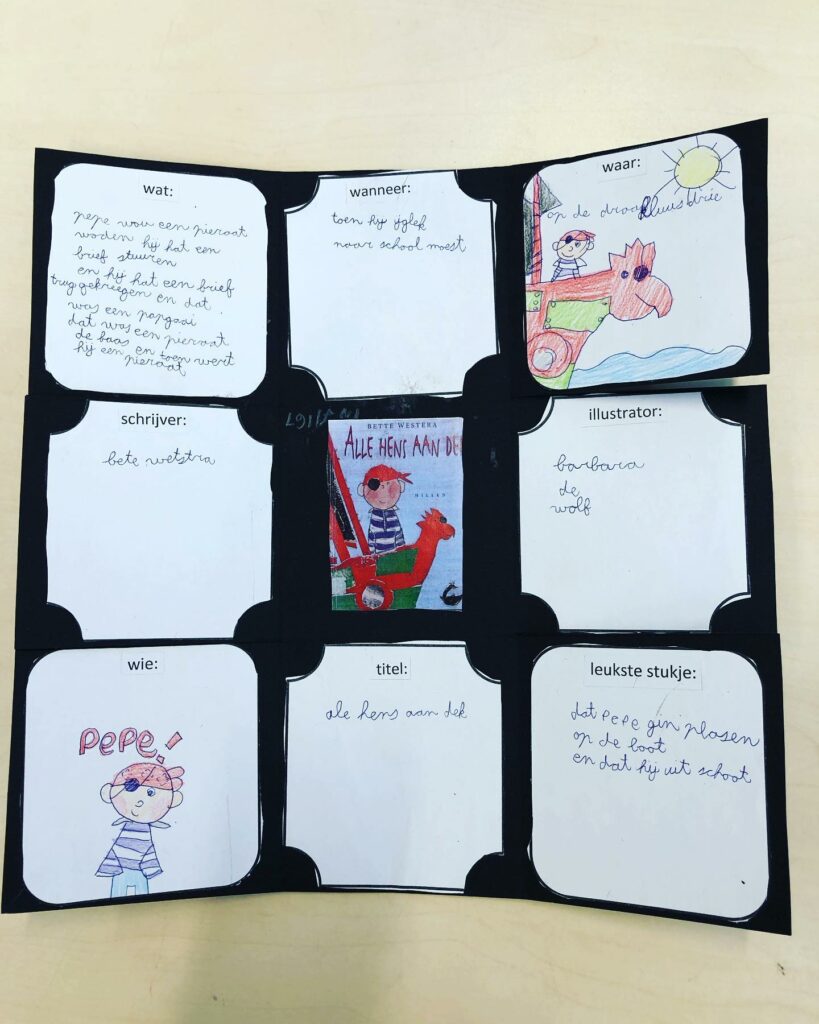 wat:
pepe wou een pieraat
woden hij hat een
brief stuuren
en hij hat een brief
trug gekreegen en dat
was een papgaai
dat was een pieraat
de baas en toen wert
hij een pieraat
wanneer:
toen hij
naar school moest
waar:
op de
schrijver:
bete wetstra
BETTE WESTERA
ALLE HENS AAN DE
illustrator:
barbara
de
wolf
wie:
PePe!
titel:
ale hens aan dek
leukste stukje:
dat PePe gin plasen
op de boot
en dat hij uit schoot